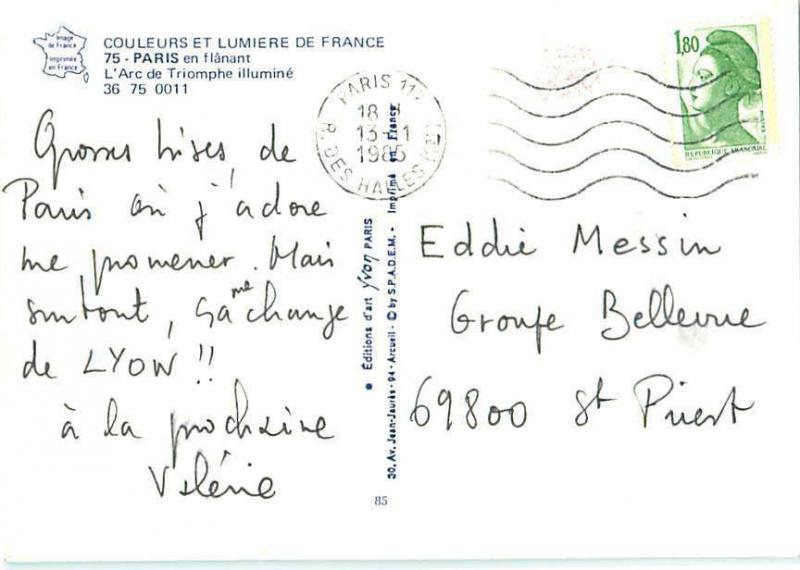 Image
de France
Imprimée
en France
COULEURS ET LUMIERE DE FRANCE
75 - PARIS en flânant
L'Arc de Triomphe illuminé
36 75 0011
Grosses bises, de
Paris où j'adore
me promener. Mais
surtout, ça me change
de LYON !!
à la prochaine
Valérie
PARIS
18
13-
1985
R. DES HALLES
1,80
POSTES
REPUBLIQUE FRANCAISE
Eddie Messin
Groupe Bellevue
69800 St Priest
Editions d'art Yvon PARIS
30, Av. Jean-Jaurès - 94 - Arcueil - © by S.P.A.D.E.M. - Imprimé en France
85